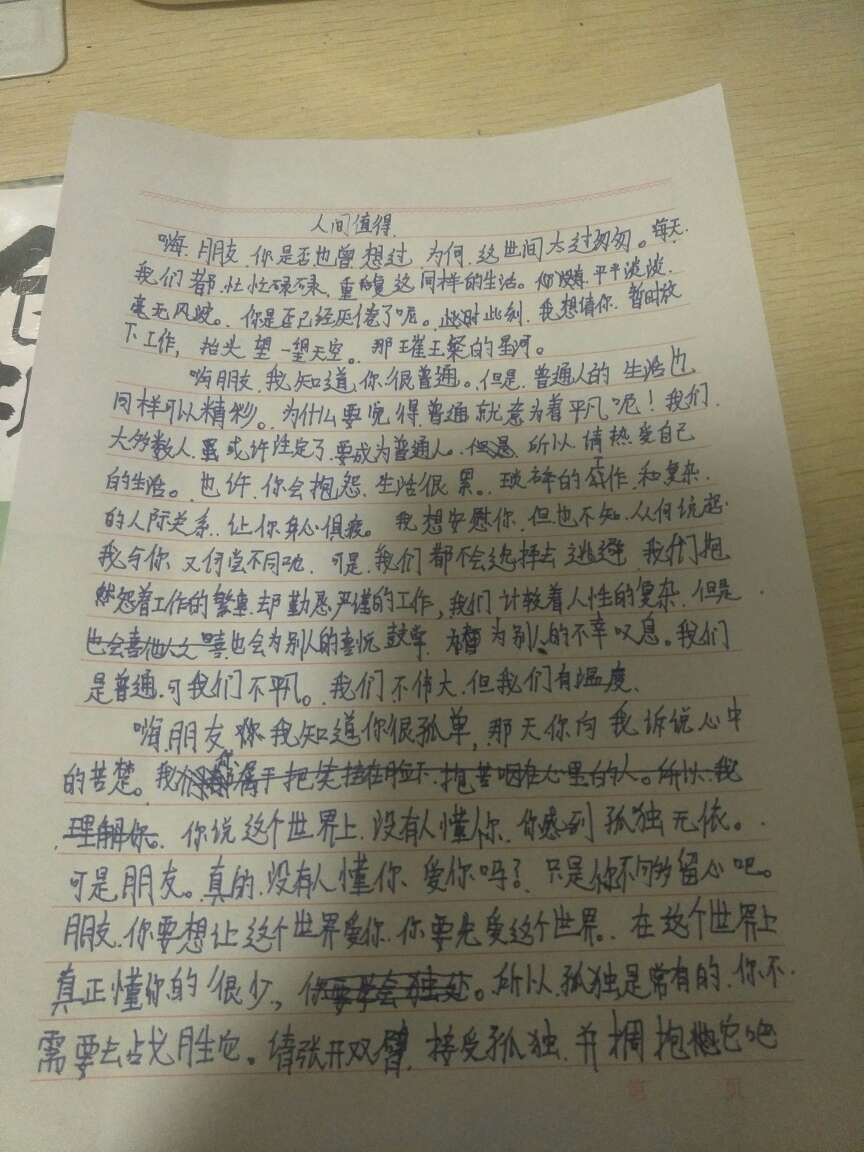 人间值得.
嗨.朋友.你是否也曾想过.为何.这世间太过匆匆。每天.
我们都.忙忙碌碌.重复这同样的生活。平平淡淡.
毫无风波。.你是否已经厌倦了呢。此时此刻.我想请你.暂时放
下工作，抬头望一望天空。.那璀璨的星河。
嗨朋友.我知道.你很普通。.但是.普通人的生活也
同样可以精彩。.为什么要觉得普通就意为着平凡呢！我们.
大多数人.或许注定了.要成为普通人。.所以.请热爱自己
的生活。也许.你会抱怨.生活很累。.琐碎的工作.和复杂.
的人际关系..让你身心俱疲。我想安慰你.但也不知.从何说起.
我与你.又何尝不同功.可是.我们都不会选择去逃避.我们抱
怨着工作的繁重.却勤恳严谨的工作，我们计较着人性的复杂.但是
也会为别人的喜悦鼓掌.为别人的不幸叹息。我们
是普通.可我们不平凡。我们不伟大.但我们有温度.
嗨.朋友.我知道你很孤单，那天你向我诉说心中
的苦楚。我们都属于把笑挂在脸下.抱苦咽在心里的人。所以.我
理解你.你说这个世界上.没有人懂你.你感到孤独无依。.
可是朋友。真的.没有人懂你、爱你吗？只是你不够留心吧。
朋友.你要想让这个世界爱你.你要先爱这个世界。.在这个世界上
真正懂你的很少，你要学会独处。所以.孤独是常有的.你不.
需要去战胜它。请张开双臂.接受孤独.并拥抱它吧